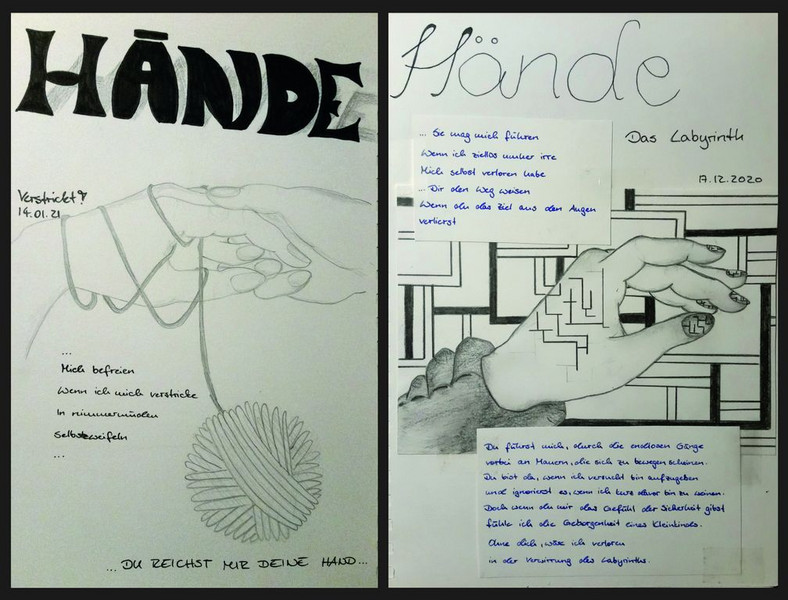 HÄNDE
Verstrickt?
14.01.21
...
Mich befreien
Wenn ich mich verstricke
In nimmermüden
Selbstzweifeln
...
...DU REICHST MIR DEINE HAND...
Hände
Das Labyrinth
17.12.2020
... Sie mag mich führen
Wenn ich ziellos umher irre
Mich selbst verloren habe
... Dir den Weg weisen
Wenn du das Ziel aus den Augen
verlierst
Du führst mich, durch die endlosen Gänge
vorbei an Mauern, die sich zu bewegen scheinen.
Du bist da, wenn ich versucht bin aufzugeben
und ignorierst es, wenn ich kurz davor bin zu weinen.
Doch wenn du mir das Gefühl der Sicherheit gibst
fühle ich die Geborgenheit eines Kleinkinds.
Ohne dich, wäre ich verloren
in der Verwirrung des Labyrinths.